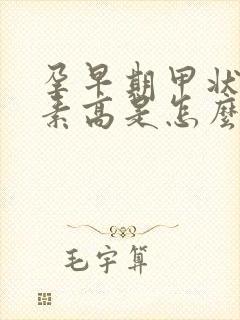 孕早期甲状
素高是怎麼
毛宇算